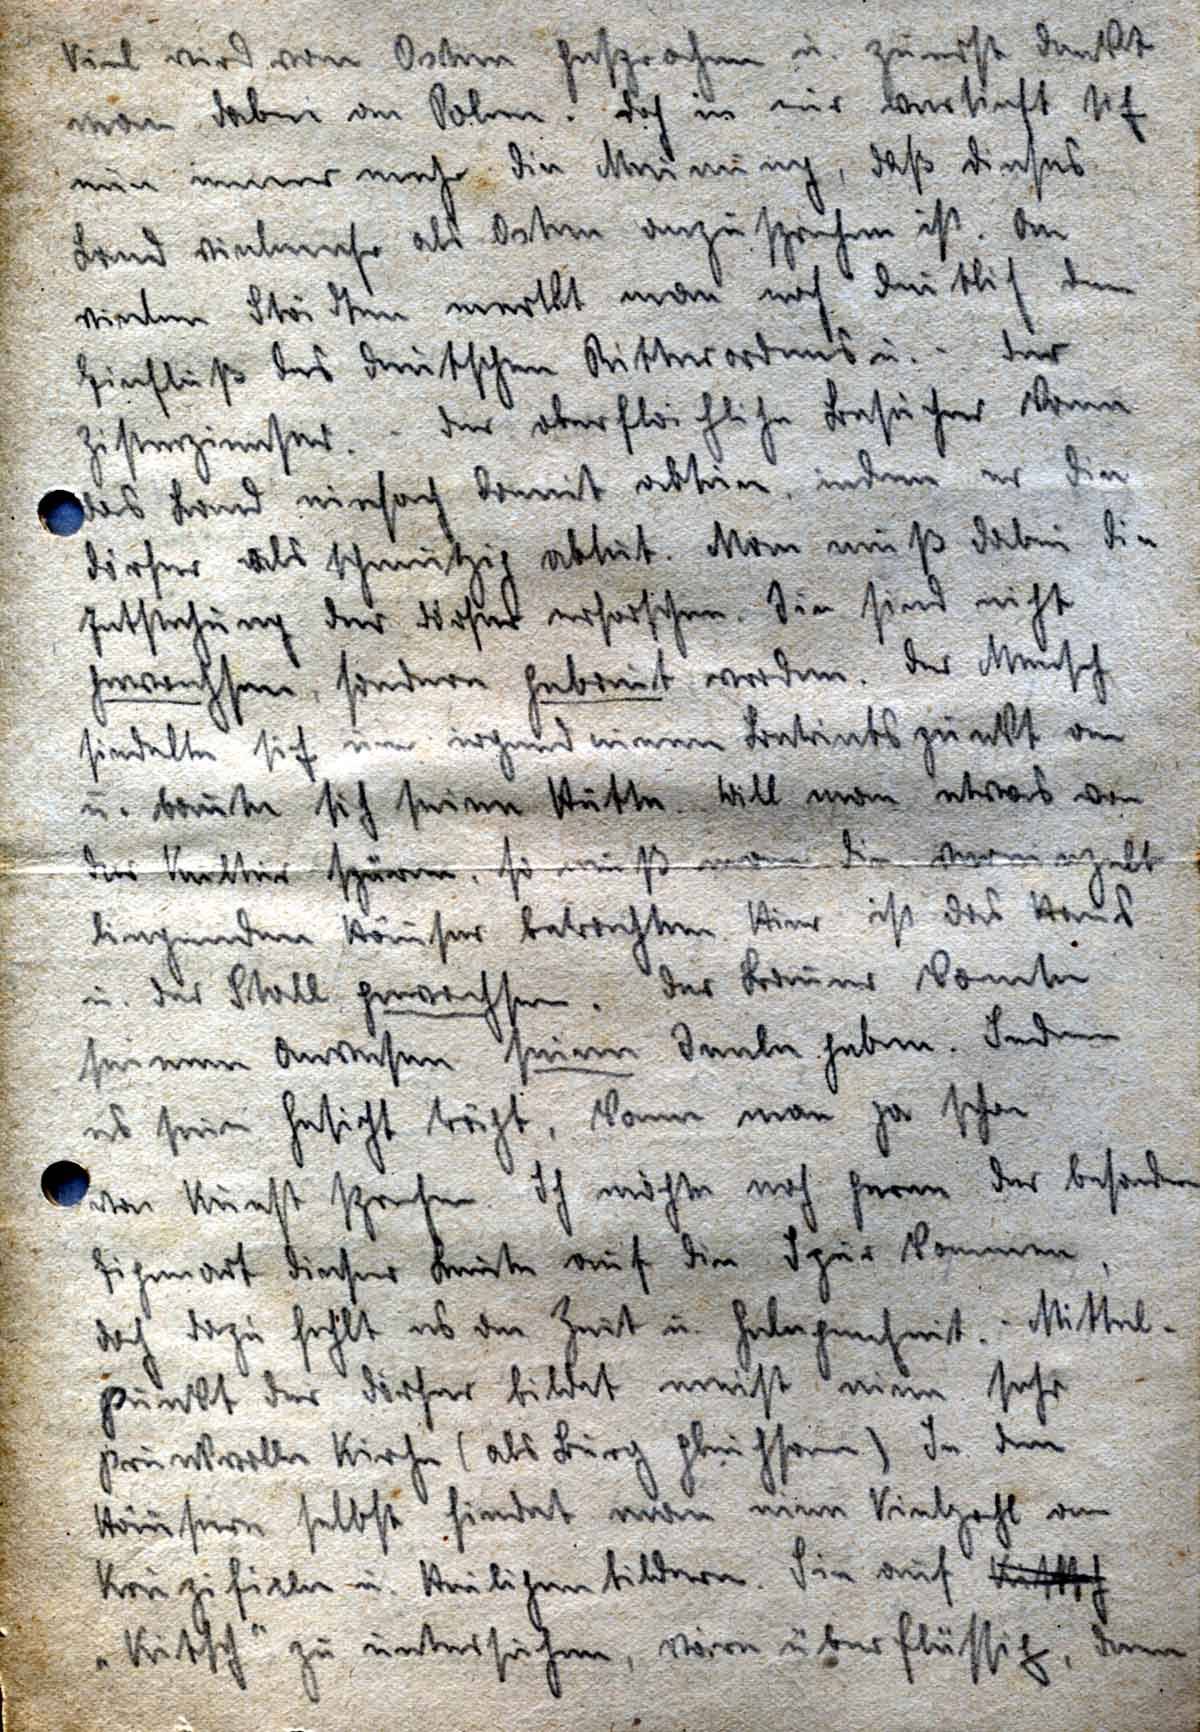 Viel wird vom Osten gesprochen u. zuerst denkt
man dabei an Polen. Doch in mir versteift sich
nun immer mehr die Meinung, daß dieses
Land vielmehr als Osten anzusprechen ist. An
vielen Städten merkt man noch deutlich den
Einfluß des deutschen Ritterordens u. - der
Zisterzienser. - Der oberflächliche Besucher kann
das Land einfach damit abtun, indem er die
Dörfer als schmutzig abtut. Man muß dabei die
Entstehung der Dörfer erforschen. Sie sind nicht
gewachsen, sondern gebaut worden. Der Mensch
siedelte sich um irgend einen Betriebspunkt an
u. baute sich seine Hütte. Will man etwas von
der Kultur spüren, so muß man die vereinzelt
liegenden Häuser betrachten. Hier ist das Haus
u. der Stall gewachsen. Der Bauer konnte
seinem Anwesen seine Seele geben. Indem
es sein Gesicht trägt, kann man ja schon
von Kunst sprechen. Ich möchte noch gerne der besonderen
Eigenart dieser Leute auf die Spur kommen,
doch dazu fehlt es an Zeit u. Gelegenheit. - Mittel-
punkt der Dörfer bildet meist eine sehr
prunkvolle Kirche (als Burg gleichsam) In den
Häusern selbst findet man eine Vielzahl an
Kruzifixen u. Heiligenbildern. Sie auf
„Kitsch" zu untersuchen, wäre überflüssig, denn